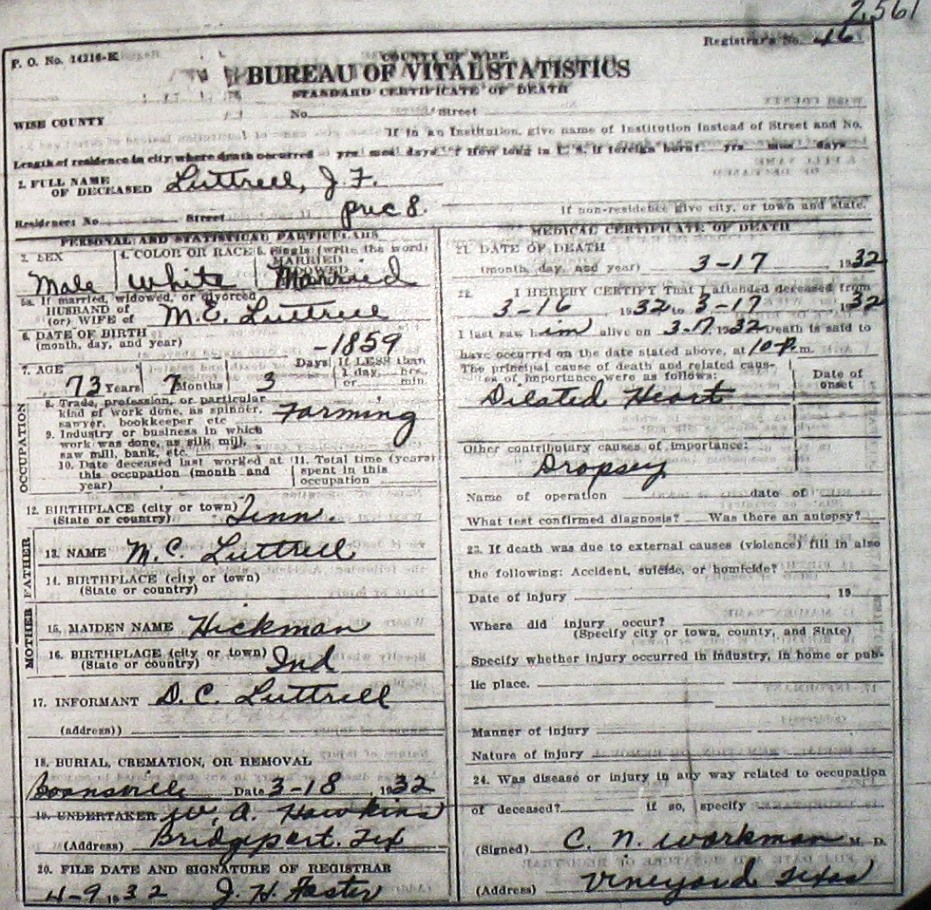 2,561
Registrar's No. 46
F. O. No. 14216-K
COUNTY OF WISE
BUREAU OF VITAL STATISTICS
STANDARD CERTIFICATE OF DEATH
WISE COUNTY No. Street
If in an Institution, give name of Institution instead of Street and No.
Length of residence in city where death occurred yrs mos days How long in U. S. if foreign born? yrs mos days
2. FULL NAME
OF DECEASED Luttrell, J. F.
Residence: No Street prec 8.
If non-residence give city, or town and state.
PERSONAL AND STATISTICAL PARTICULARS
3. SEX 4. COLOR OR RACE 5. Single (write the word)
MARRIED
WIDOWED
Male White Married
5a. If married, widowed, or divorced
HUSBAND of
(or) WIFE of M. E. Luttrell
6. DATE OF BIRTH
(month, day, and year) -1859
7. AGE 73 Years 7 Months 3 Days If LESS than
1 day, hrs.
or min.
OCCUPATION
8. Trade, profession, or particular
kind of work done, as spinner,
sawyer, bookkeeper etc Farming
9. Industry or business in which
work was done, as silk mill,
saw mill, bank, etc.
10. Date deceased last worked at
this occupation (month and
year)
11. Total time (years)
spent in this
occupation
12. BIRTHPLACE (city or town)
(State or country) Tenn.
FATHER
13. NAME M. C. Luttrell
14. BIRTHPLACE (city or town)
(State or country)
MOTHER
15. MAIDEN NAME Hickman
16. BIRTHPLACE (city or town)
(State or country) Ind
17. INFORMANT D. C. Luttrell
(address))
18. BURIAL, CREMATION, OR REMOVAL
Boonsville Date 3-18 1932
19. UNDERTAKER W. A. Hawkins
(Address) Bridgeport. Tex
20. FILE DATE AND SIGNATURE OF REGISTRAR
4-9-1932 J. H. Faster
MEDICAL CERTIFICATE OF DEATH
21. DATE OF DEATH
(month, day, and year) 3-17 1932
22. I HEREBY CERTIFY That I attended deceased from
3-16 1932 to 3-17 1932
I last saw him alive on 3-17 1932 Death is said to
have occurred on the date stated above, at 10-P.m.
The principal cause of death and related causes
of importance were as follows:
Date of
onset
Dilated Heart
Other contributary causes of importance:
Dropsey
Name of operation date of
What test confirmed diagnosis? Was there an autopsy?
23. If death was due to external causes (violence) fill in also
the following: Accident, suicide, or homicide?
Date of injury 19
Where did injury occur?
(Specify city or town, county, and State)
Specify whether injury occurred in industry, in home or pub-
lic place.
Manner of injury
Nature of injury
24. Was disease or injury in any way related to occupation
of deceased? if so, specify
(Signed) C. N. Workman M. D.
(Address) Vineyard Texas